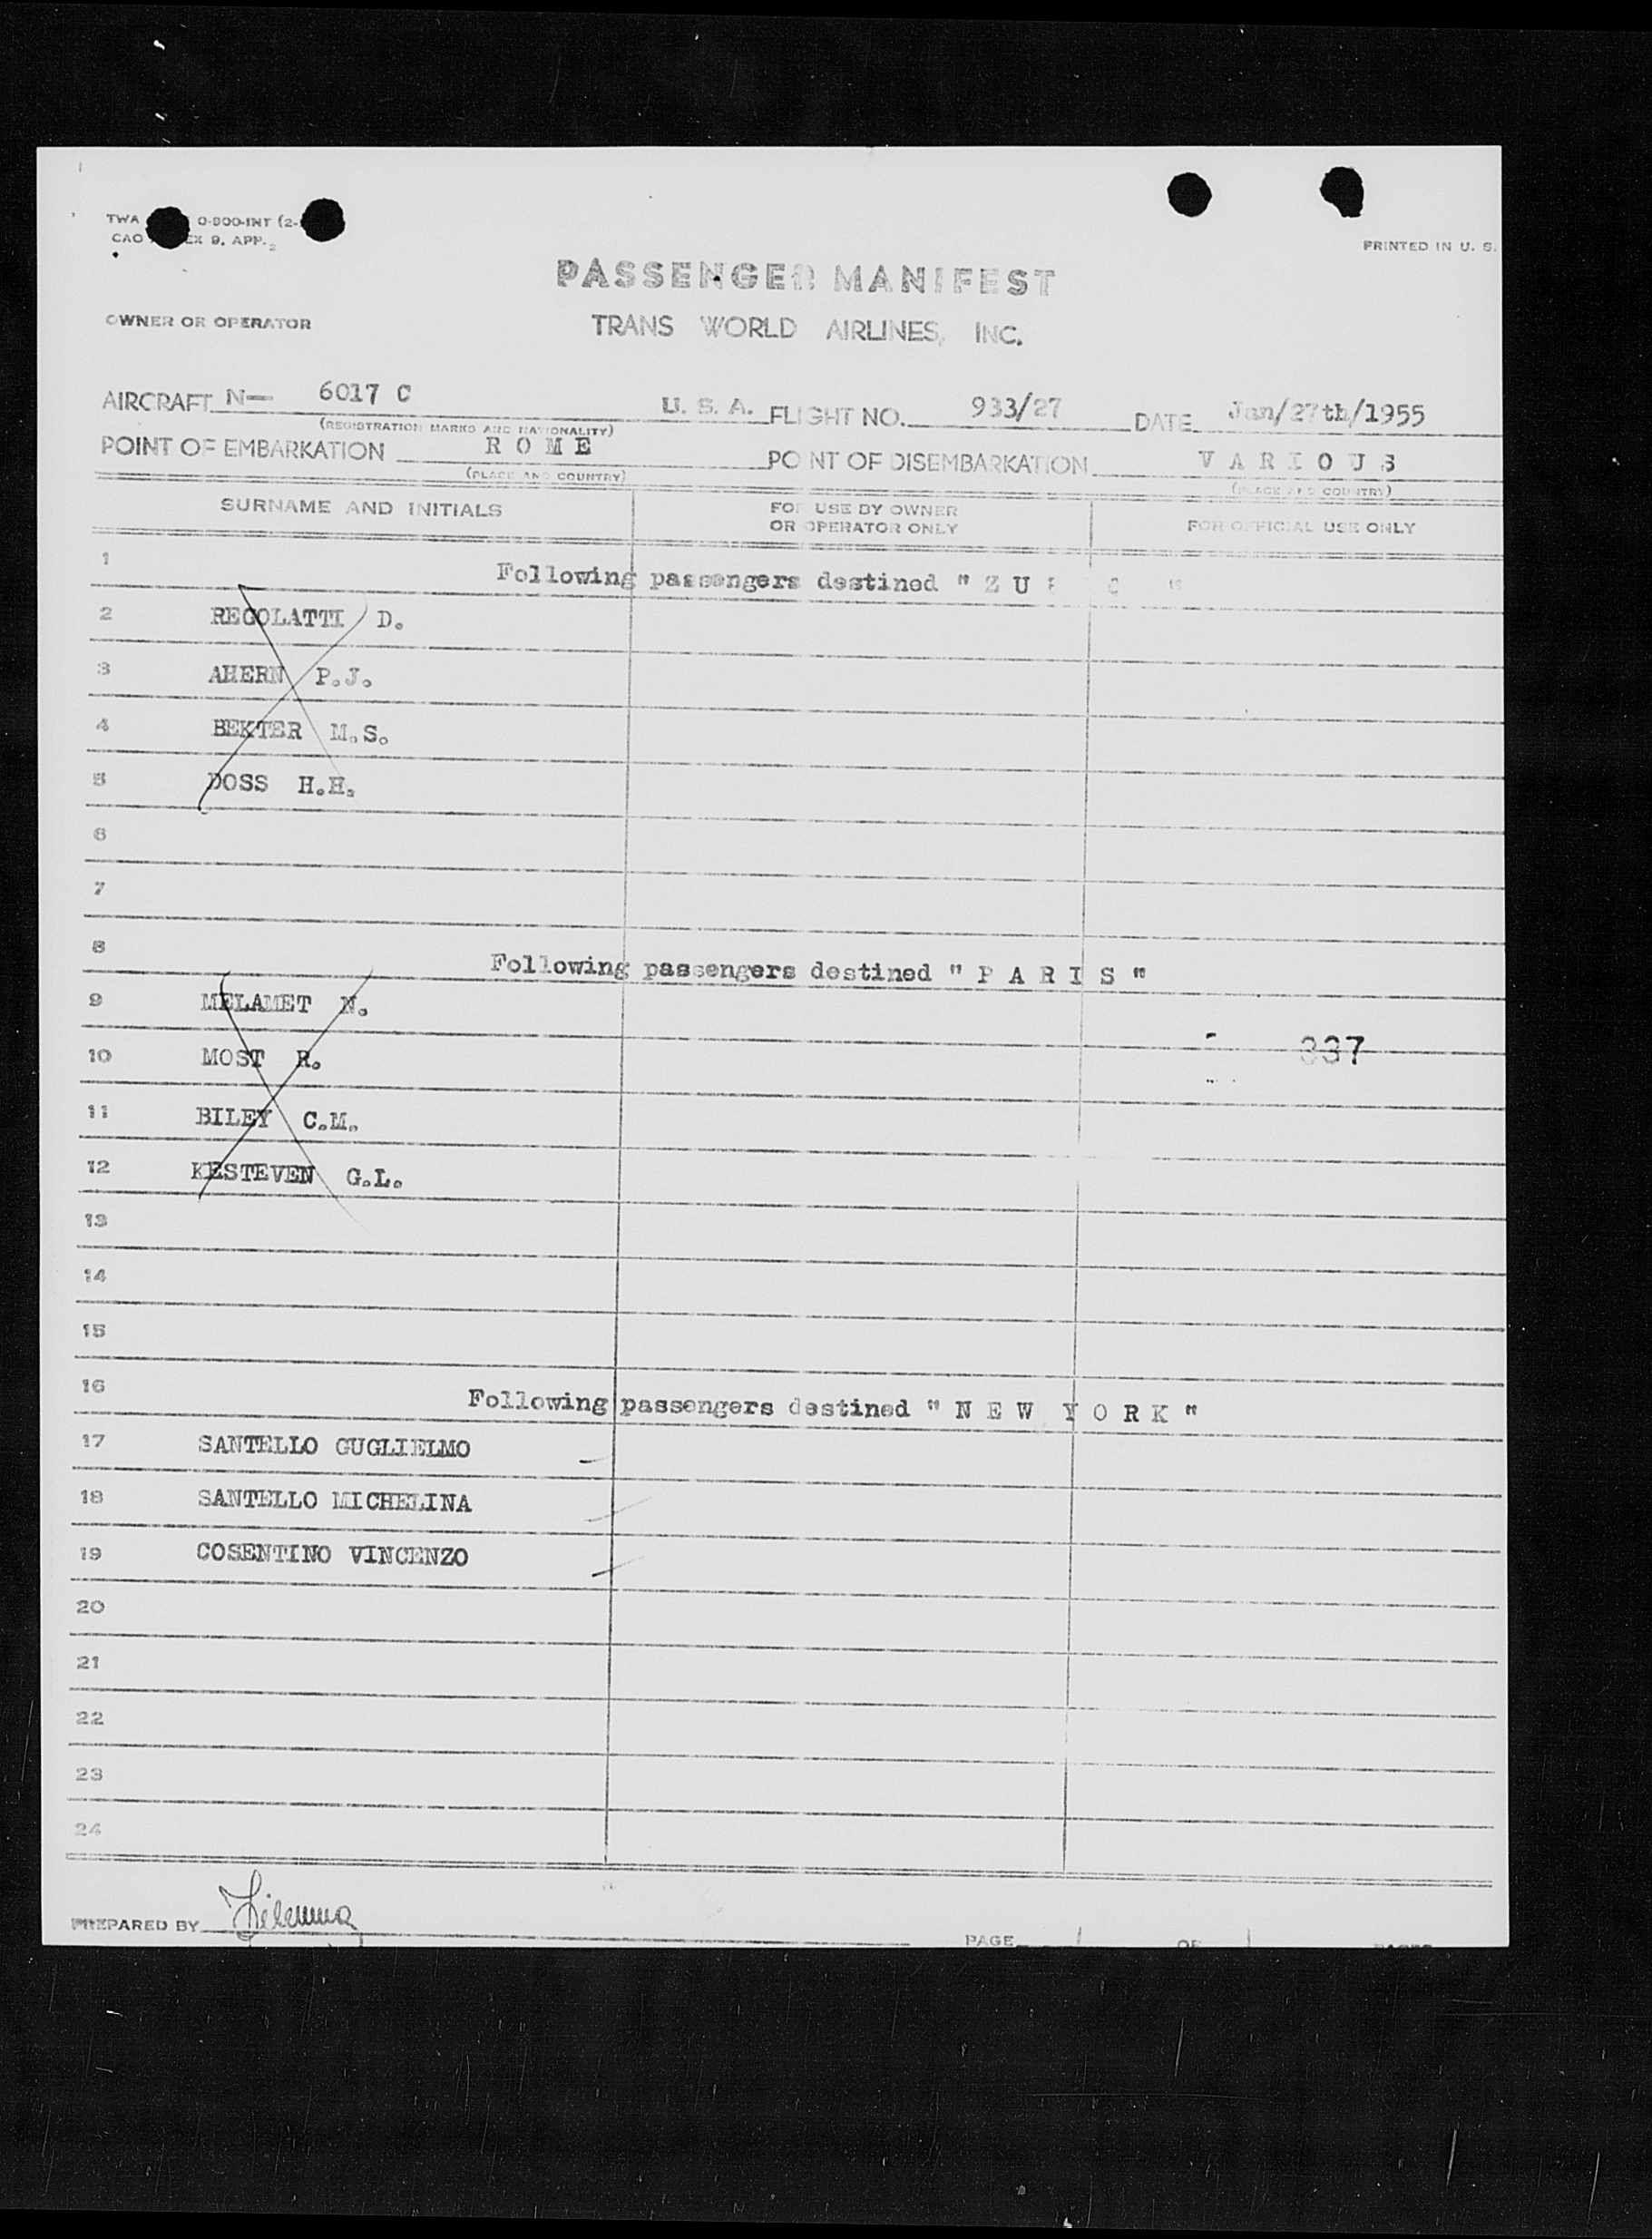 TWA O-800-INT (2-
CAO EX 9, APP. 2
PRINTED IN U. S.
PASSENGER MANIFEST
OWNER OR OPERATOR TRANS WORLD AIRLINES, INC.
AIRCRAFT N— 6017 C U. S. A. FLIGHT NO. 933/27 DATE Jan/27th/1955
(REGISTRATION MARKS AND NATIONALITY)
POINT OF EMBARKATION R O M E POINT OF DISEMBARKATION V A R I O U S
(PLACE AND COUNTRY) (PLACE AND COUNTRY)
SURNAME AND INITIALS FOR USE BY OWNER OR OPERATOR ONLY FOR OFFICIAL USE ONLY
1 Following passengers destined " Z U "
2 REGOLATTI D.
3 AHERN P.J.
4 BEKTER M.S.
5 DOSS H.H.
6
7
8 Following passengers destined " P A R I S "
9 MELAMET N.
337
10 MOST R.
11 BILEY C.M.
12 KESTEVEN G.L.
13
14
15
16 Following passengers destined " N E W Y O R K "
17 SANTELLO GUGLIELMO
18 SANTELLO MICHELINA
19 COSENTINO VINCENZO
20
21
22
23
24
PREPARED BY PAGE OF PAGES